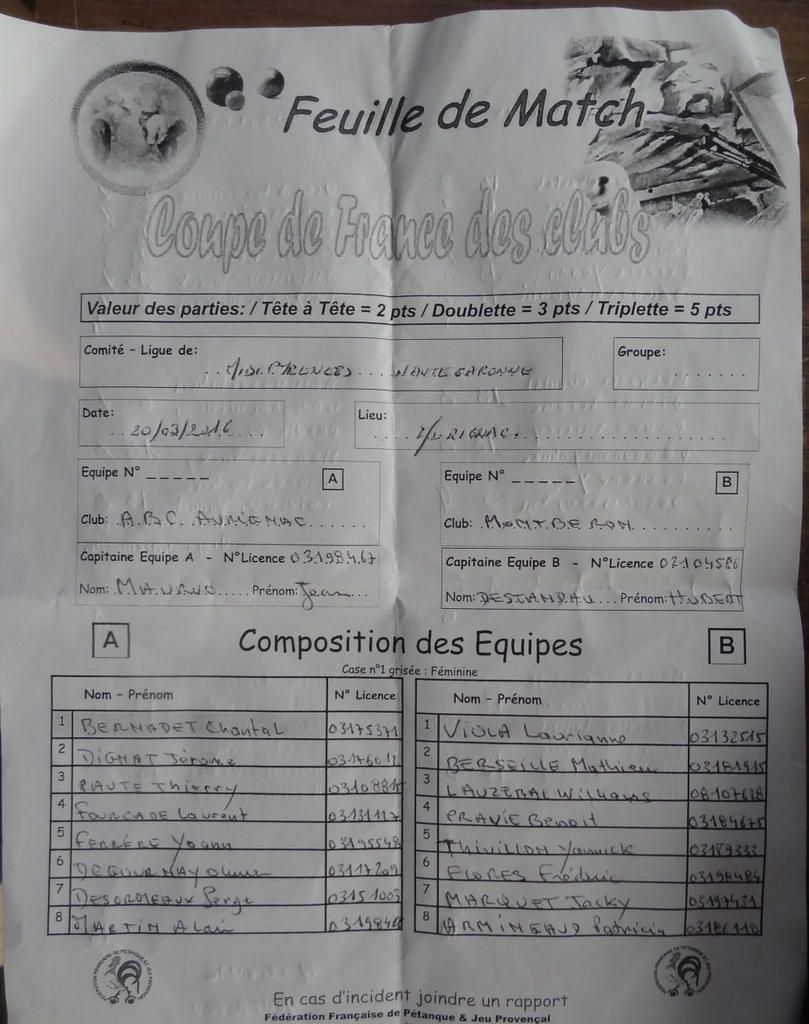 Feuille de Match
Coupe de France des clubs
Valeur des parties: / Tête à Tête = 2 pts / Doublette = 3 pts / Triplette = 5 pts
Comité - Ligue de: MIDI PYRENEES HAUTE GARONNE
Groupe:
Date: 20/03/2016
Lieu: AURIGNAC
Equipe N° _ _ _ _ _ A
Equipe N° _ _ _ _ _ B
Club: A.B.C. AURIGNAC
Club: MONTBERON
Capitaine Equipe A - N°Licence 03198467
Capitaine Equipe B - N°Licence
Nom: Prénom: Jean
Nom: Prénom: HUBERT
A Composition des Equipes B
Case n°1 grisée : Féminine
Nom - Prénom N° Licence
1 BERNADET Chantal 03175371
2 DIGNAT Jérome
3 PIAUTE Thierry
4 FOURCADE Laurent
5 FERRERE Yoann 03195548
6
7 DESORMEAUX Serge 03151003
8 MARTIN Alain
Nom - Prénom N° Licence
1 VIOLA Laurianne 03132515
2 BERSEILLE Mathieu 03181915
3 LAUZERAL Williams 08107628
4 PRAVIE Benoit 03184675
5 THIVILLON Yannick 03189333
6 FLORES Frédéric 03198484
7 MARQUET Jacky 03197431
8 ARMINGAUD Patricia 03186110
FÉDÉRATION FRANÇAISE DE PÉTANQUE ET JEU PROVENÇAL
FÉDÉRATION FRANÇAISE DE PÉTANQUE ET JEU PROVENÇAL
En cas d'incident joindre un rapport
Fédération Française de Pétanque & Jeu Provençal